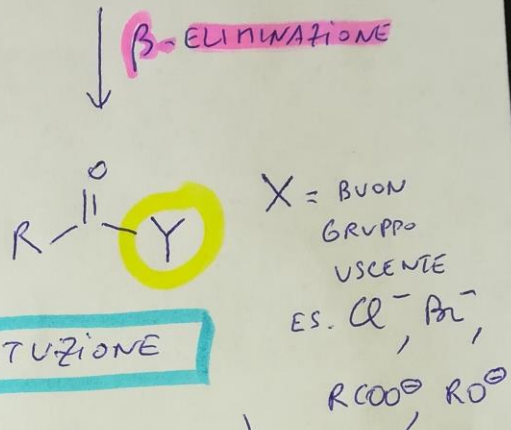 β-ELIMINAZIONE
O
R Y
X = BUON
GRUPPO
USCENTE
ES. Cl⁻, Br⁻,
RCOO⊖, RO⊖
TUZIONE